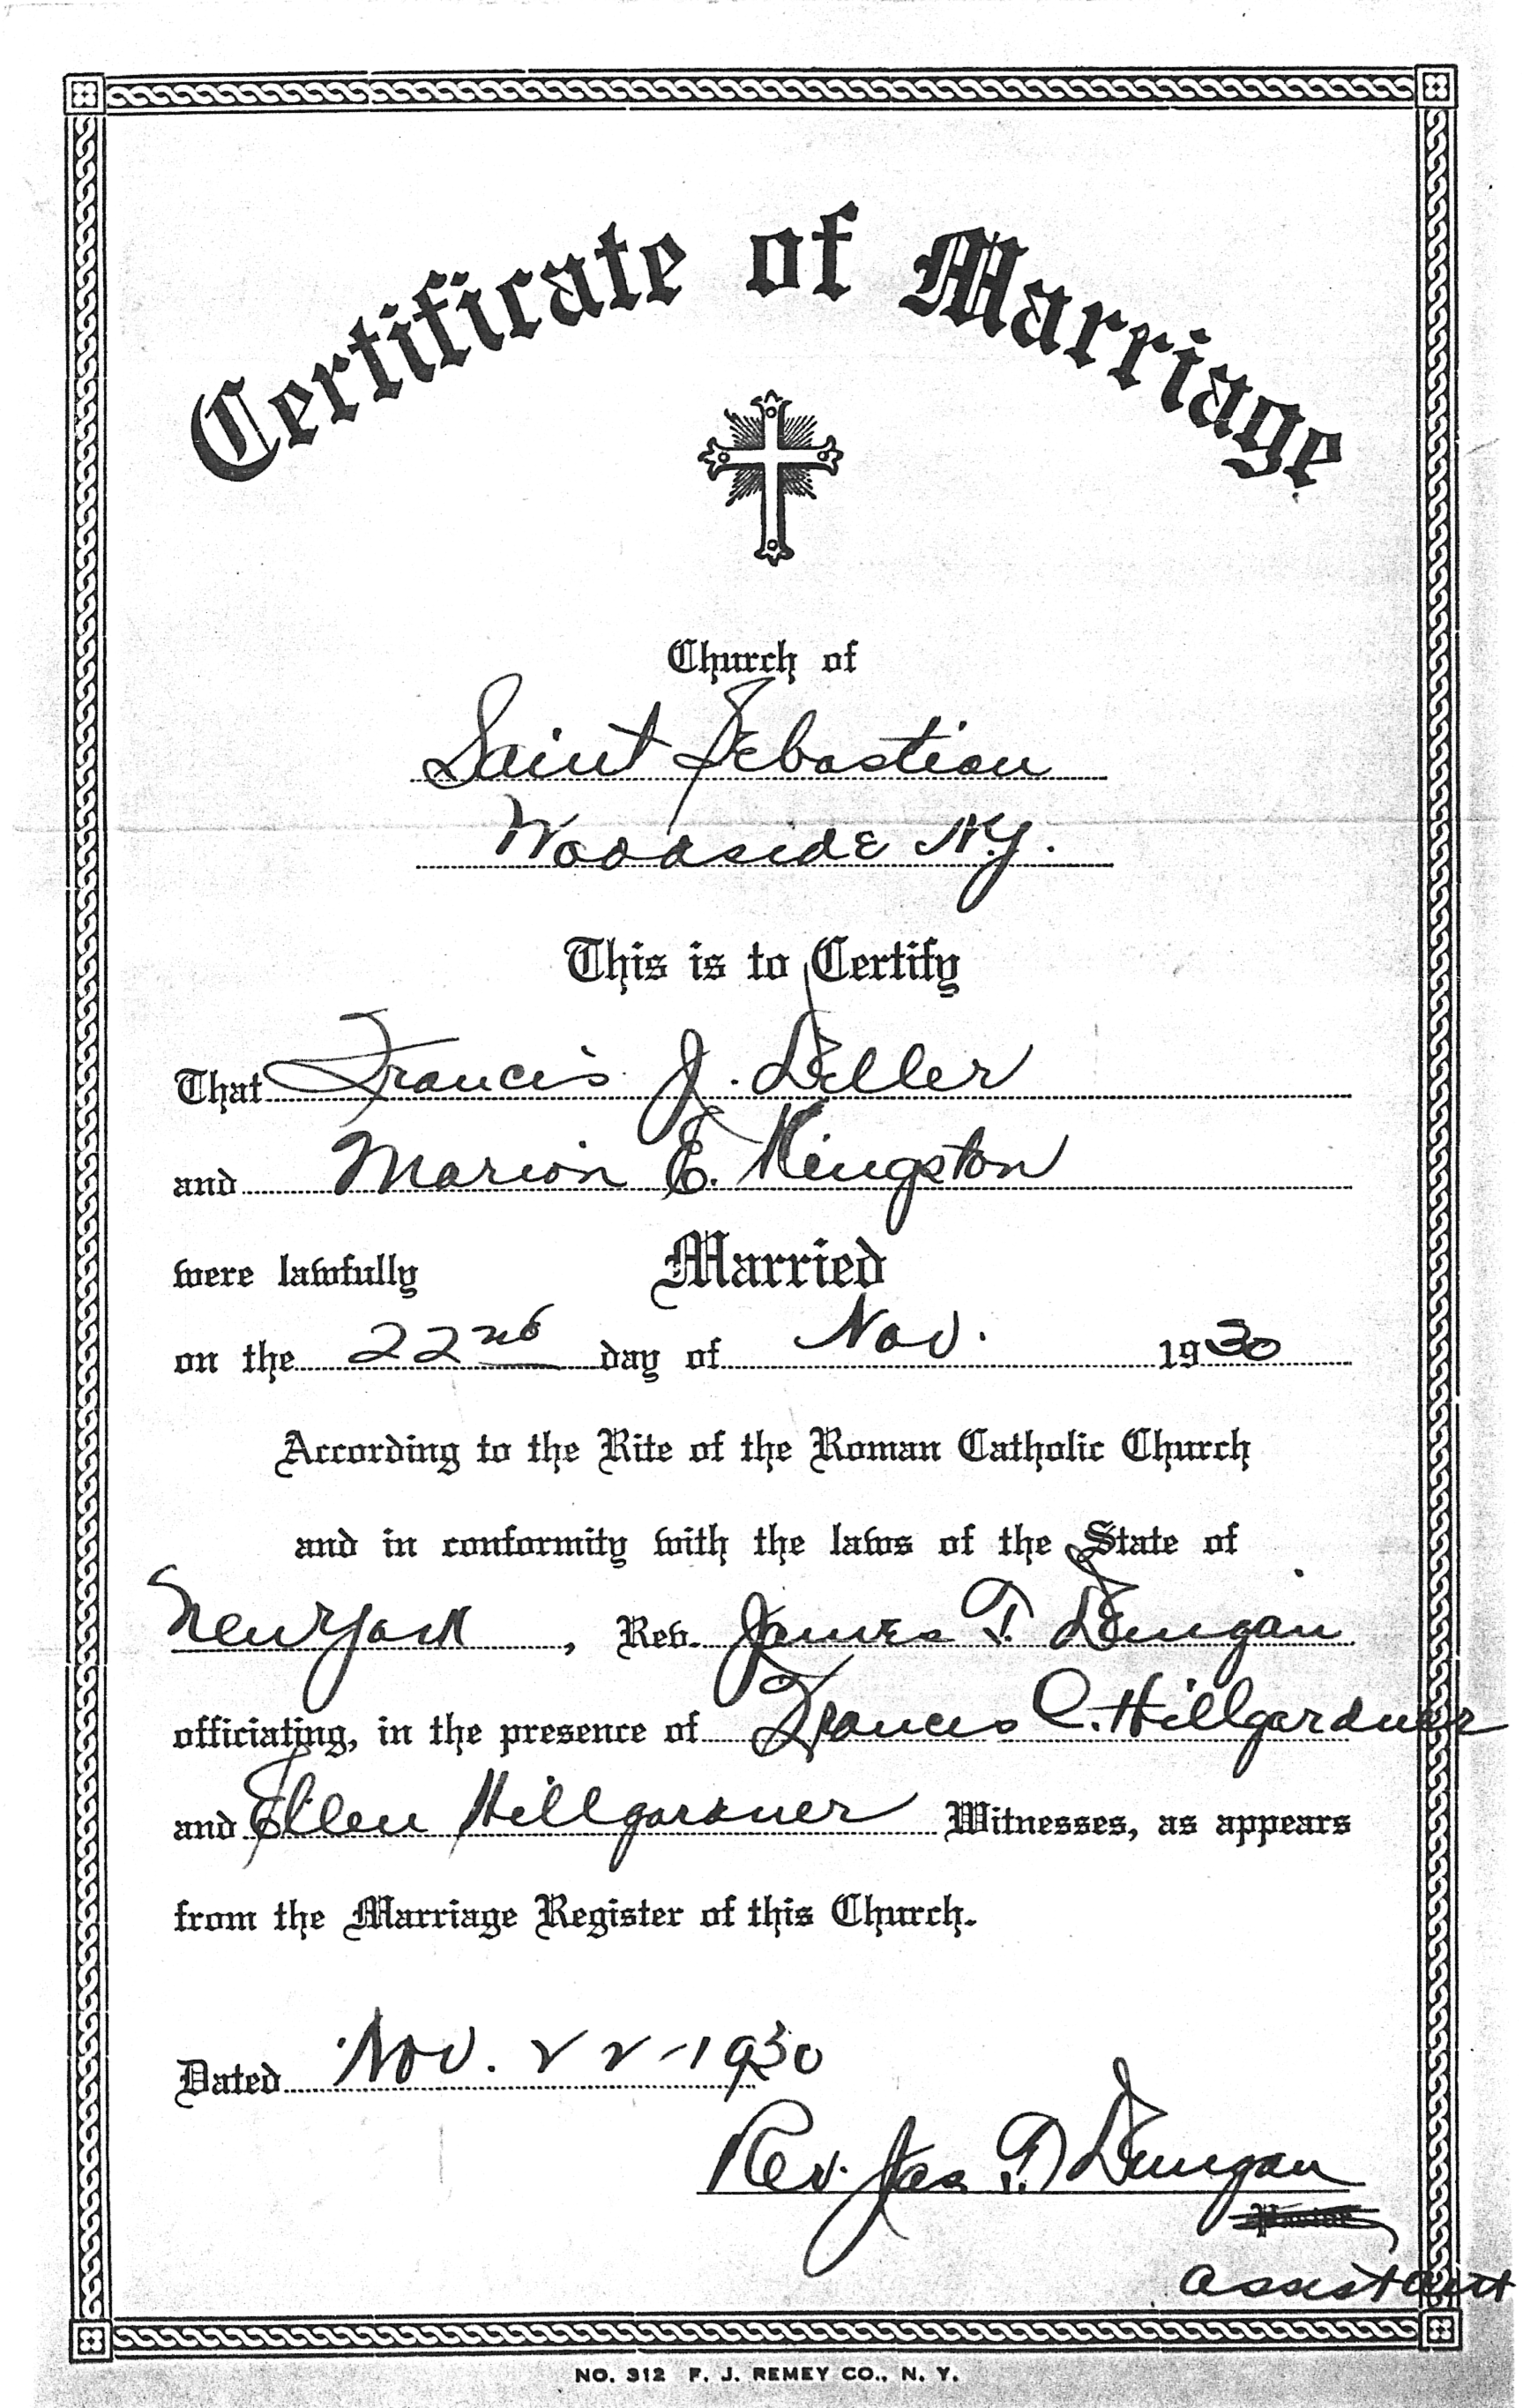 Certificate of Marriage
Church of
Saint Sebastian
Woodside N.Y.
This is to Certify
That Francis J. Deller
and Marion E. Kingston
were lawfully Married
on the 22nd day of Nov. 1930
According to the Rite of the Roman Catholic Church
and in conformity with the laws of the State of
New York, Rev. James T. Dungan
officiating, in the presence of Francis C. Hillgardner
and Ellen Hillgardner Witnesses, as appears
from the Marriage Register of this Church.
Dated Nov. 22-1930
Rev. Jas T. Dungan
Pastor
assistant
NO. 312 F. J. REMEY CO., N. Y.